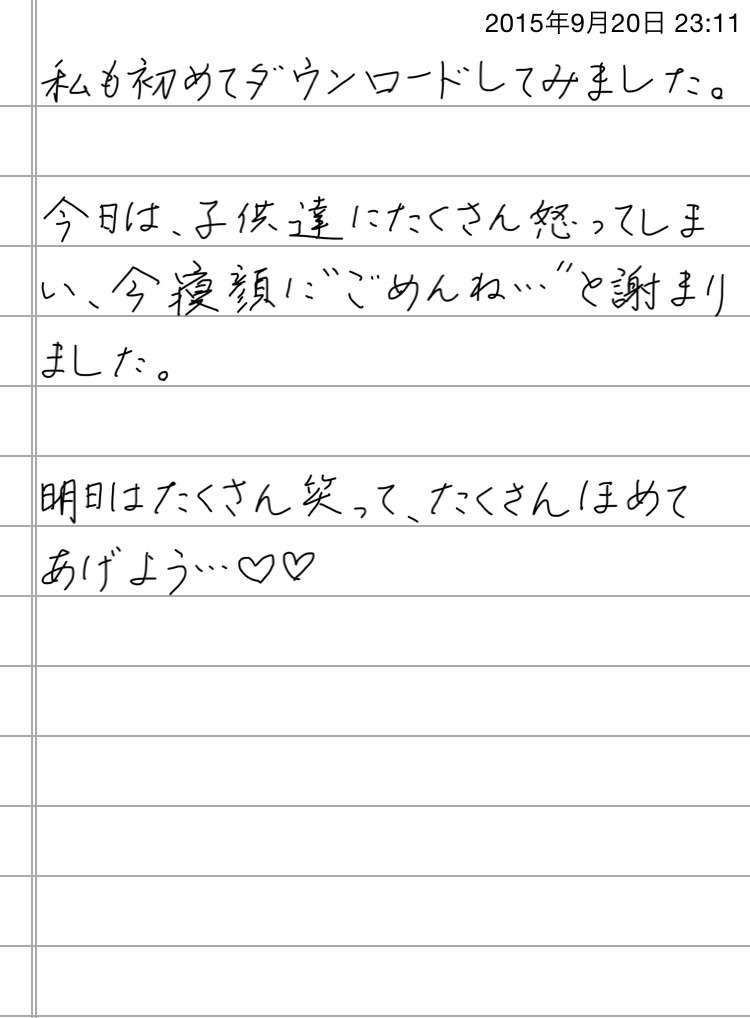 2015年9月20日 23:11
私も初めてダウンロードしてみました。
今日は、子供達にたくさん怒ってしま
い、今寝顔に"ごめんね…"と謝まり
ました。
明日はたくさん笑って、たくさんほめて
あげよう…♡♡